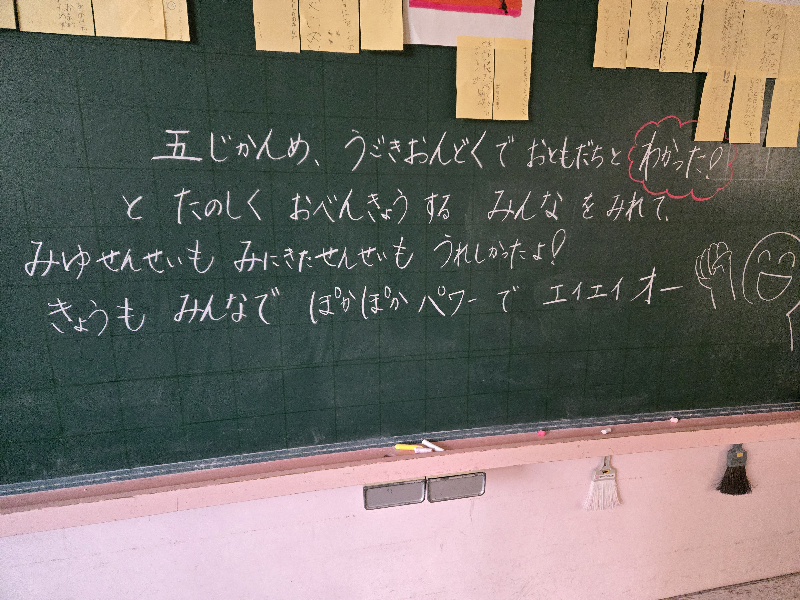 五じかんめ、うごきおんどくでおともだちとわかった!
とたのしくおべんきょうするみんなをみれて、
みゆせんせいもみにきたせんせいもうれしかったよ!
きょうもみんなでぽかぽかパワーでエイエイオー